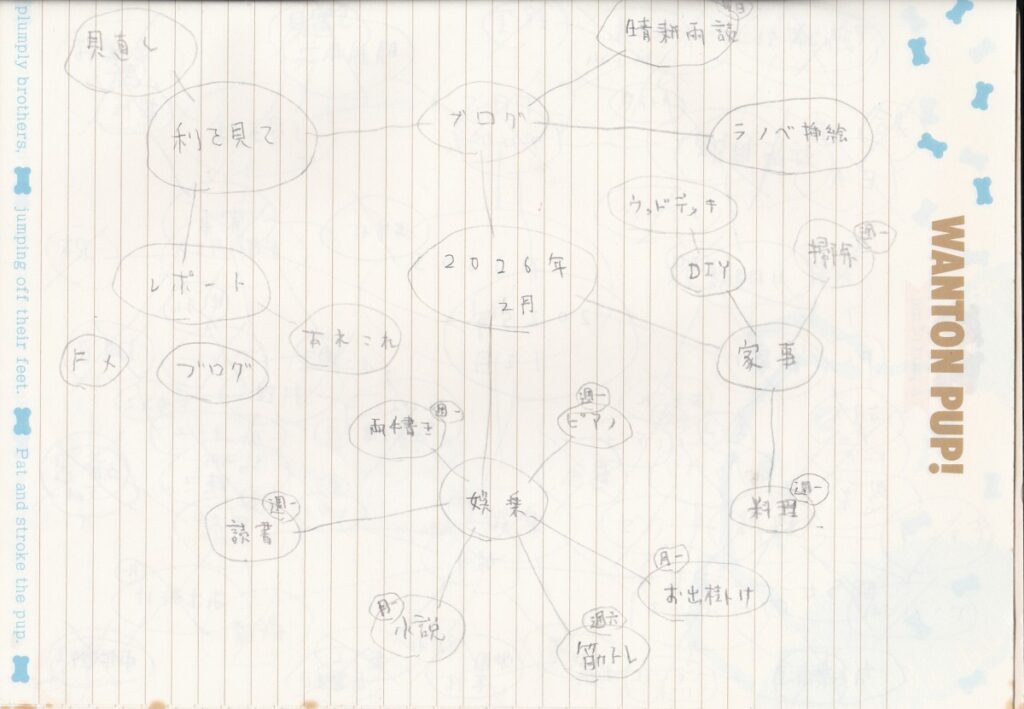 見直し
利を見て
ブログ
晴耕雨談
ラノベ挿絵
ウッドデッキ
DIY
掃除
週一
2026年
2月
レポート
あれこれ
ドメ
ブログ
家事
両手書き
週一
ピアノ
週一
娯楽
読書
週一
料理
週一
お出掛け
月一
小説
月一
筋トレ
週六
WANTON PUP!
plumply brothers,
jumping off their feet.
Pat and stroke the pup.